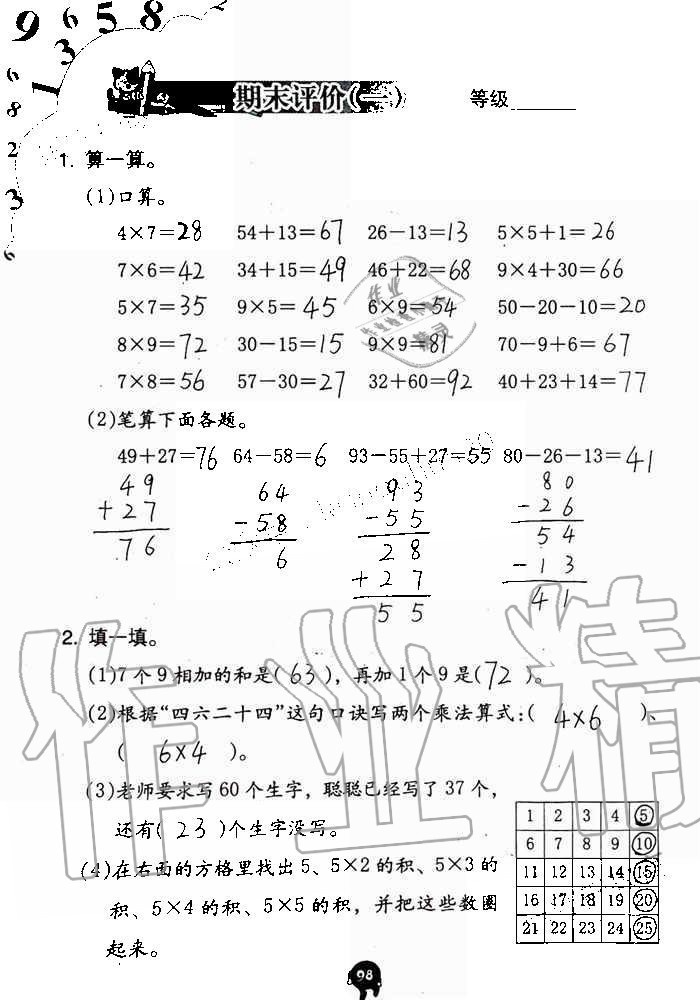 9 6 5 8
1 3
6
8
2
3
6
期末评价(一) 等级
1. 算一算。
(1)口算。
4×7=28 54+13=67 26-13=13 5×5+1=26
7×6=42 34+15=49 46+22=68 9×4+30=66
5×7=35 9×5=45 6×9=54 50-20-10=20
8×9=72 30-15=15 9×9=81 70-9+6=67
7×8=56 57-30=27 32+60=92 40+23+14=77
(2)笔算下面各题。
49+27=76 64-58=6 93-55+27=55 80-26-13=41
49 64 93 80
+27 -58 -55 -26
76 6 28 54
+27 -13
55 41
2. 填一填。
(1)7个9相加的和是(63),再加1个9是(72)。
(2)根据“四六二十四”这句口诀写两个乘法算式:( 4×6 )、
( 6×4 )。
(3)老师要求写60个生字,聪聪已经写了37个,
还有(23)个生字没写。
(4)在右面的方格里找出5、5×2的积、5×3的
积、5×4的积、5×5的积,并把这些数圈
起来。
1 2 3 4 5
6 7 8 9 10
11 12 13 14 15
16 17 18 19 20
21 22 23 24 25
98
作业精